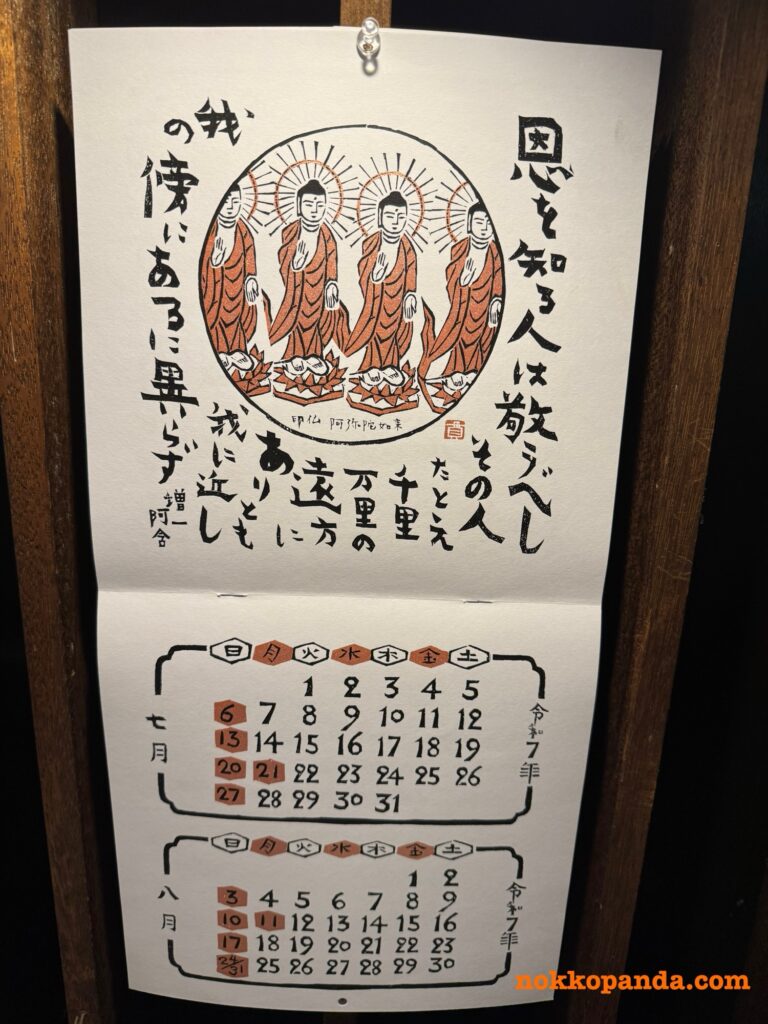 恩を知る人は敬うべし
その人
たとえ
千里
万里の
遠方
に
あり
とも
我に近し
我
の傍にあるに異らず
増一
阿含
印仏 阿弥陀如来
日 月 火 水 木 金 土
1 2 3 4 5
6 7 8 9 10 11 12
13 14 15 16 17 18 19
20 21 22 23 24 25 26
27 28 29 30 31
令和7年
七月
日 月 火 水 木 金 土
1 2
3 4 5 6 7 8 9
10 11 12 13 14 15 16
17 18 19 20 21 22 23
24/31 25 26 27 28 29 30
令和7年
八月
nokkopanda.com